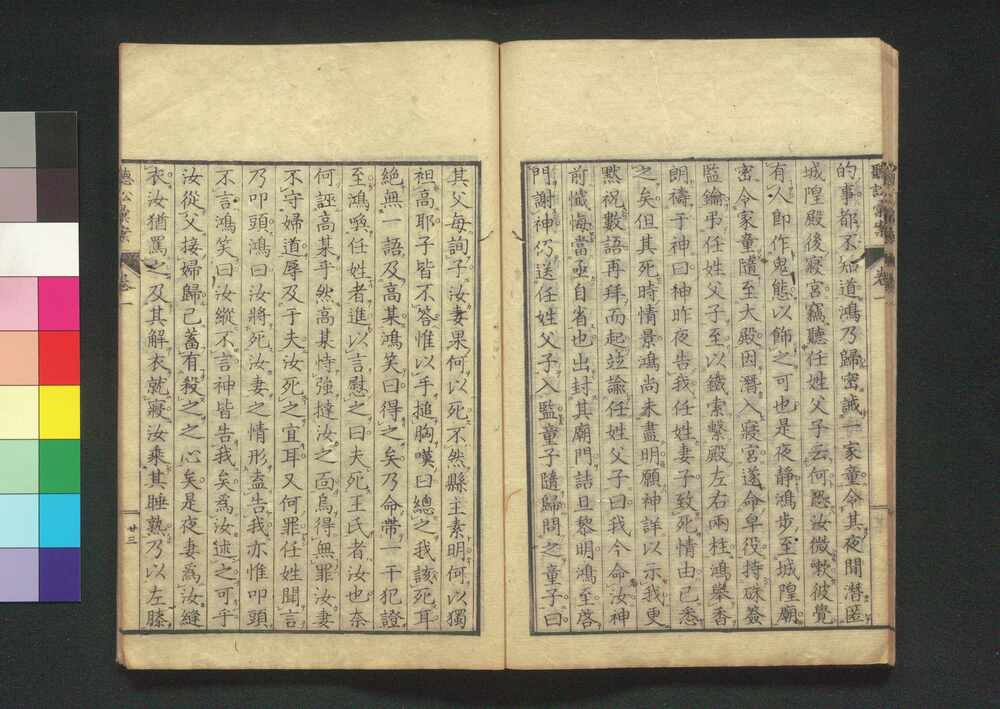 的事都不知道鴻乃歸密誠一家童令其夜間潛匿
城隍殿後寢宮竊聽任姓父子云何恐汝微嗽彼覺
有人卽作鬼態以飾之可也是夜靜鴻步至城隍廟
密令家童隨至大殿因潛入寢宮遂命皁役持硃簽
監鑰弔任姓父子至以鐵索繫殿左右兩柱鴻擧香
朗禱于神曰神昨夜告我任姓妻子致死情由已悉
之矣但其死時情景鴻尚未盡明願神詳以示我更
默祝數語再拜而起竝諭任姓父子曰我今命汝神
前懺悔當亟自省也出封其廟門詰旦黎明鴻至啓
門謝神仍送任姓父子入監童子隨歸問之童子曰
聽訟彙案
卷一
其父每詢子汝妻果何以死不然縣主素明何以獨
袒高耶子皆不答惟以手搥胸嘆曰總之我該死耳
絶無一語及高某鴻笑曰得之矣乃命帶一干犯證
至鴻喚任姓者進以言慰之曰夫死王氏者汝也奈
何誣高某乎然高某恃強撻汝之面烏得無罪汝妻
不守婦道辱及于夫汝死之宜耳又何罪任姓聞言
乃叩頭鴻曰汝將死汝妻之情形盍告我亦惟叩頭
不言鴻笑曰汝縱不言神皆告我矣爲汝述之可乎
汝從父接婦歸已蓄有殺之之心矣是夜妻爲汝縫
衣汝猶罵之及其解衣就寢汝乘其睡熟乃以左膝
聽訟彙案
卷一
廿三